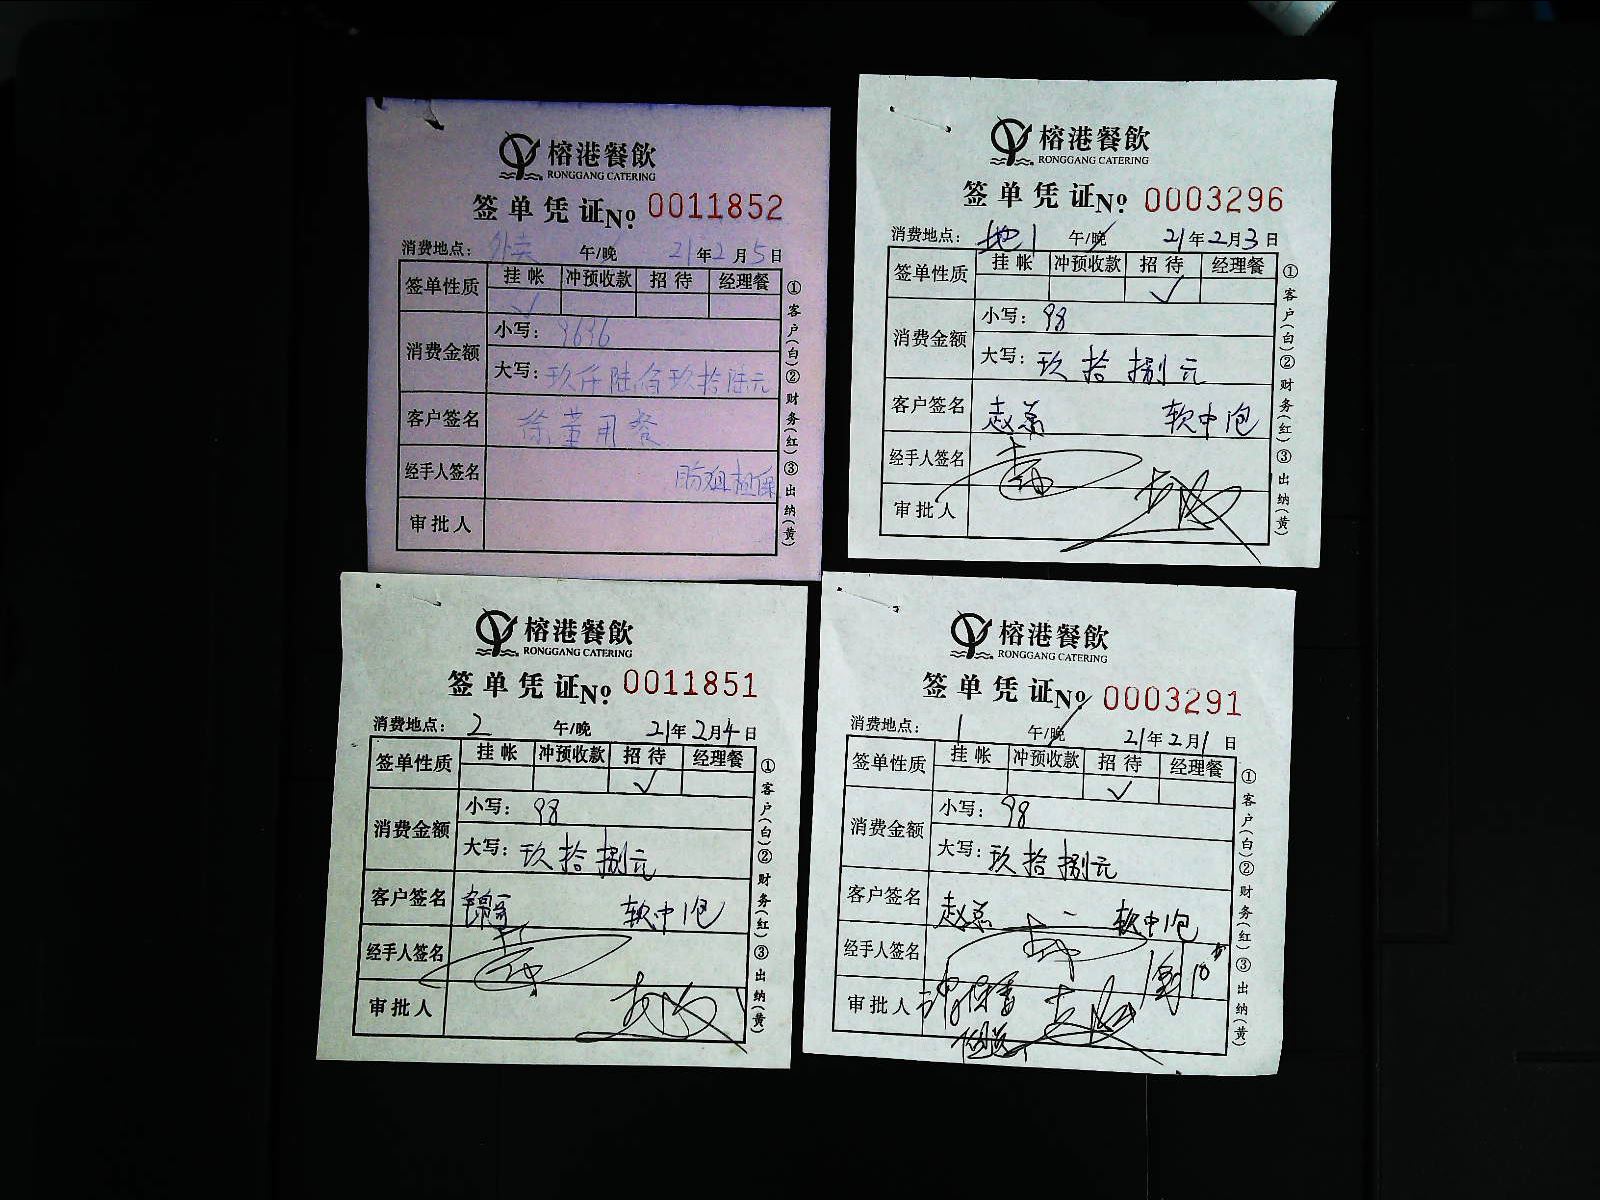 榕港餐飲
RONGGANG CATERING
签单凭证No. 0011852
消费地点: 外卖 午/晚 21年2月5日
签单性质 挂帐 冲预收款 招待 经理餐
✓
消费金额
小写: 9696
大写: 玖仟陆佰玖拾陆元
客户签名 徐董用餐
经手人签名
审批人
①客户(白)②财务(红)③出纳(黄)
榕港餐飲
RONGGANG CATERING
签单凭证No. 0003296
消费地点: 地1 午/晚 21年2月3日
签单性质 挂帐 冲预收款 招待 经理餐
✓
消费金额
小写: 98
大写: 玖拾捌元
客户签名 赵总 软中1包
经手人签名
审批人
①客户(白)②财务(红)③出纳(黄)
榕港餐飲
RONGGANG CATERING
签单凭证No. 0011851
消费地点: 2 午/晚 21年2月4日
签单性质 挂帐 冲预收款 招待 经理餐
✓
消费金额
小写: 98
大写: 玖拾捌元
客户签名 锦哥 软中1包
经手人签名
审批人
①客户(白)②财务(红)③出纳(黄)
榕港餐飲
RONGGANG CATERING
签单凭证No. 0003291
消费地点: 1 午/晚 21年2月1日
签单性质 挂帐 冲预收款 招待 经理餐
✓
消费金额
小写: 98
大写: 玖拾捌元
客户签名 赵总 软中1包
经手人签名
审批人
①客户(白)②财务(红)③出纳(黄)